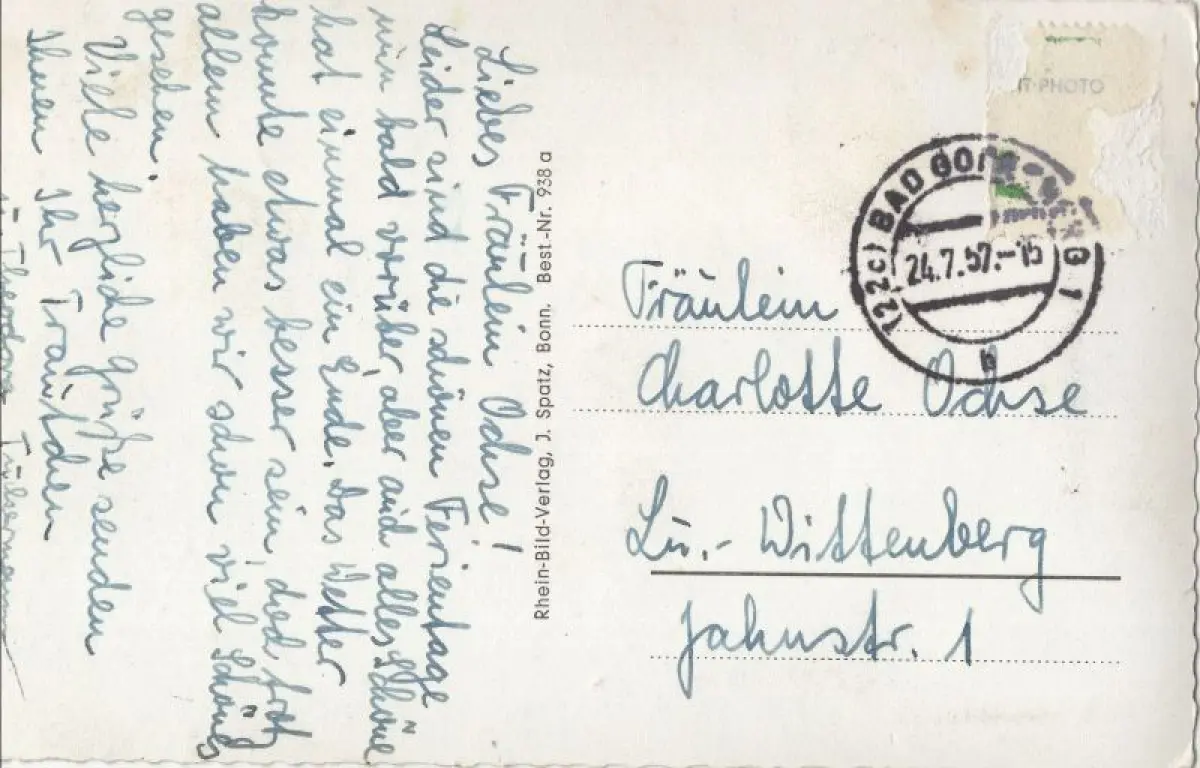 Liebes Fräulein Ochse!
Leider sind die schönen Ferientage
nun bald vorüber, aber auch alles Schöne
hat einmal ein Ende. Das Wetter
konnte etwas besser sein, doch trotz
allem haben wir schon viel Schönes
gesehen.
Viele herzliche Grüße senden
Ihnen Ihr Trautchen
u. Theodora
Rhein-Bild-Verlag, J. Spatz, Bonn. Best.-Nr. 938 a
IT-PHOTO
(22c) BAD GO
24.7.57.-15
B 1
b
Fräulein
Charlotte Ochse
Lu.- Wittenberg
Jahnstr. 1